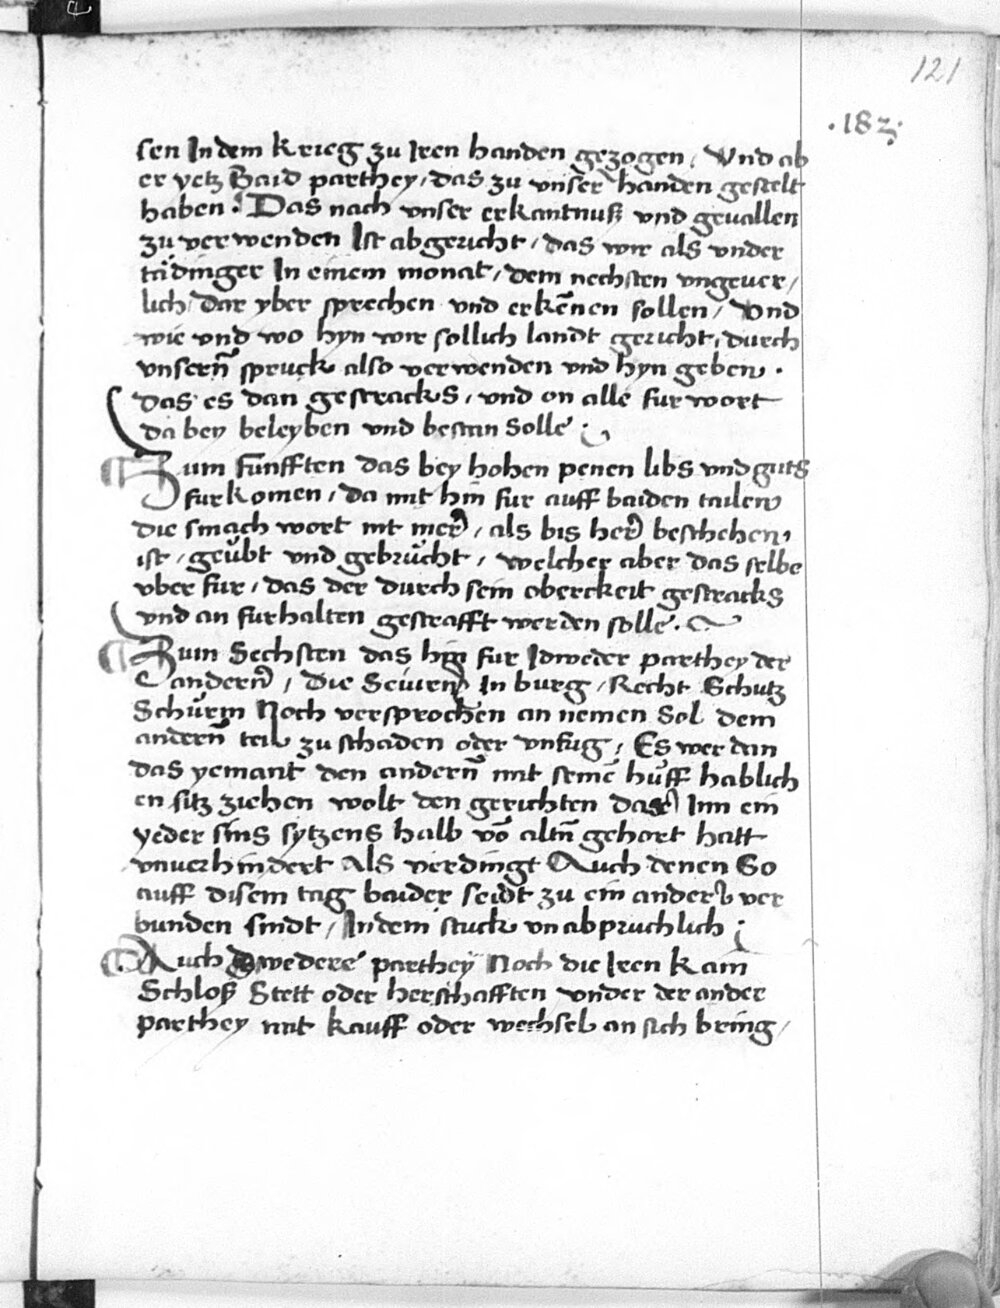 121
·183·
sen In dem krieg zu Iren handen gezogen / Vnd ab
er yetz Baid parthey / das zu vnser handen gestelt
haben · Das nach vnser erkantnuß vnd geuallen
zu verwenden Ist abgericht / das wir als vnder
tädinger In einem monat / dem nechsten vngeuer /
lich / dar yber sprechen vnd erkēnen sollen / Vnd
wie vnd wo hyn wir sollich landt gericht / durch
vnsern̄ spruck also verwenden vnd hyn geben ·
das es dan gestracks / vnd on alle fur wort
da bey beleyben vnd bestan Solle ·
Zum funfften das bey hohen penen libs vnd guts
furkomen / da mit hin fur auff baiden tailen
die smach wort nit mer / als bis her beschehen
ist / geübt vnd gebrücht / welcher aber das selbe
vber fur / das der durch sein oberckeit gestracks
vnd an furhalten gestrafft werden solle ·
Zum Sechsten das hin fur Idweder parthey der
andern̄ / die Seinen In burg / Recht Schutz
Schürm Noch versprochen an nemen Sol dem
andern̄ teil zu schaden oder vnfug / Es wer dan
das yemant den andern̄ mit seinē hüff hablich
en sitz ziehen wolt den gerichten das Inn ein
yeder sins sytzens halb vō altn̄ gehort hatt
vnuerhindert Als verdingt Auch denen So
auff disem tag baider seidt zu ein ander ver
bunden sindt / In dem stuck vnabpruchlich ;
Auch dwedere parthey Noch die Iren kain
Schloß Stett oder herschafften vnder der ander
parthey mit kauff oder wechsel an sich bring /